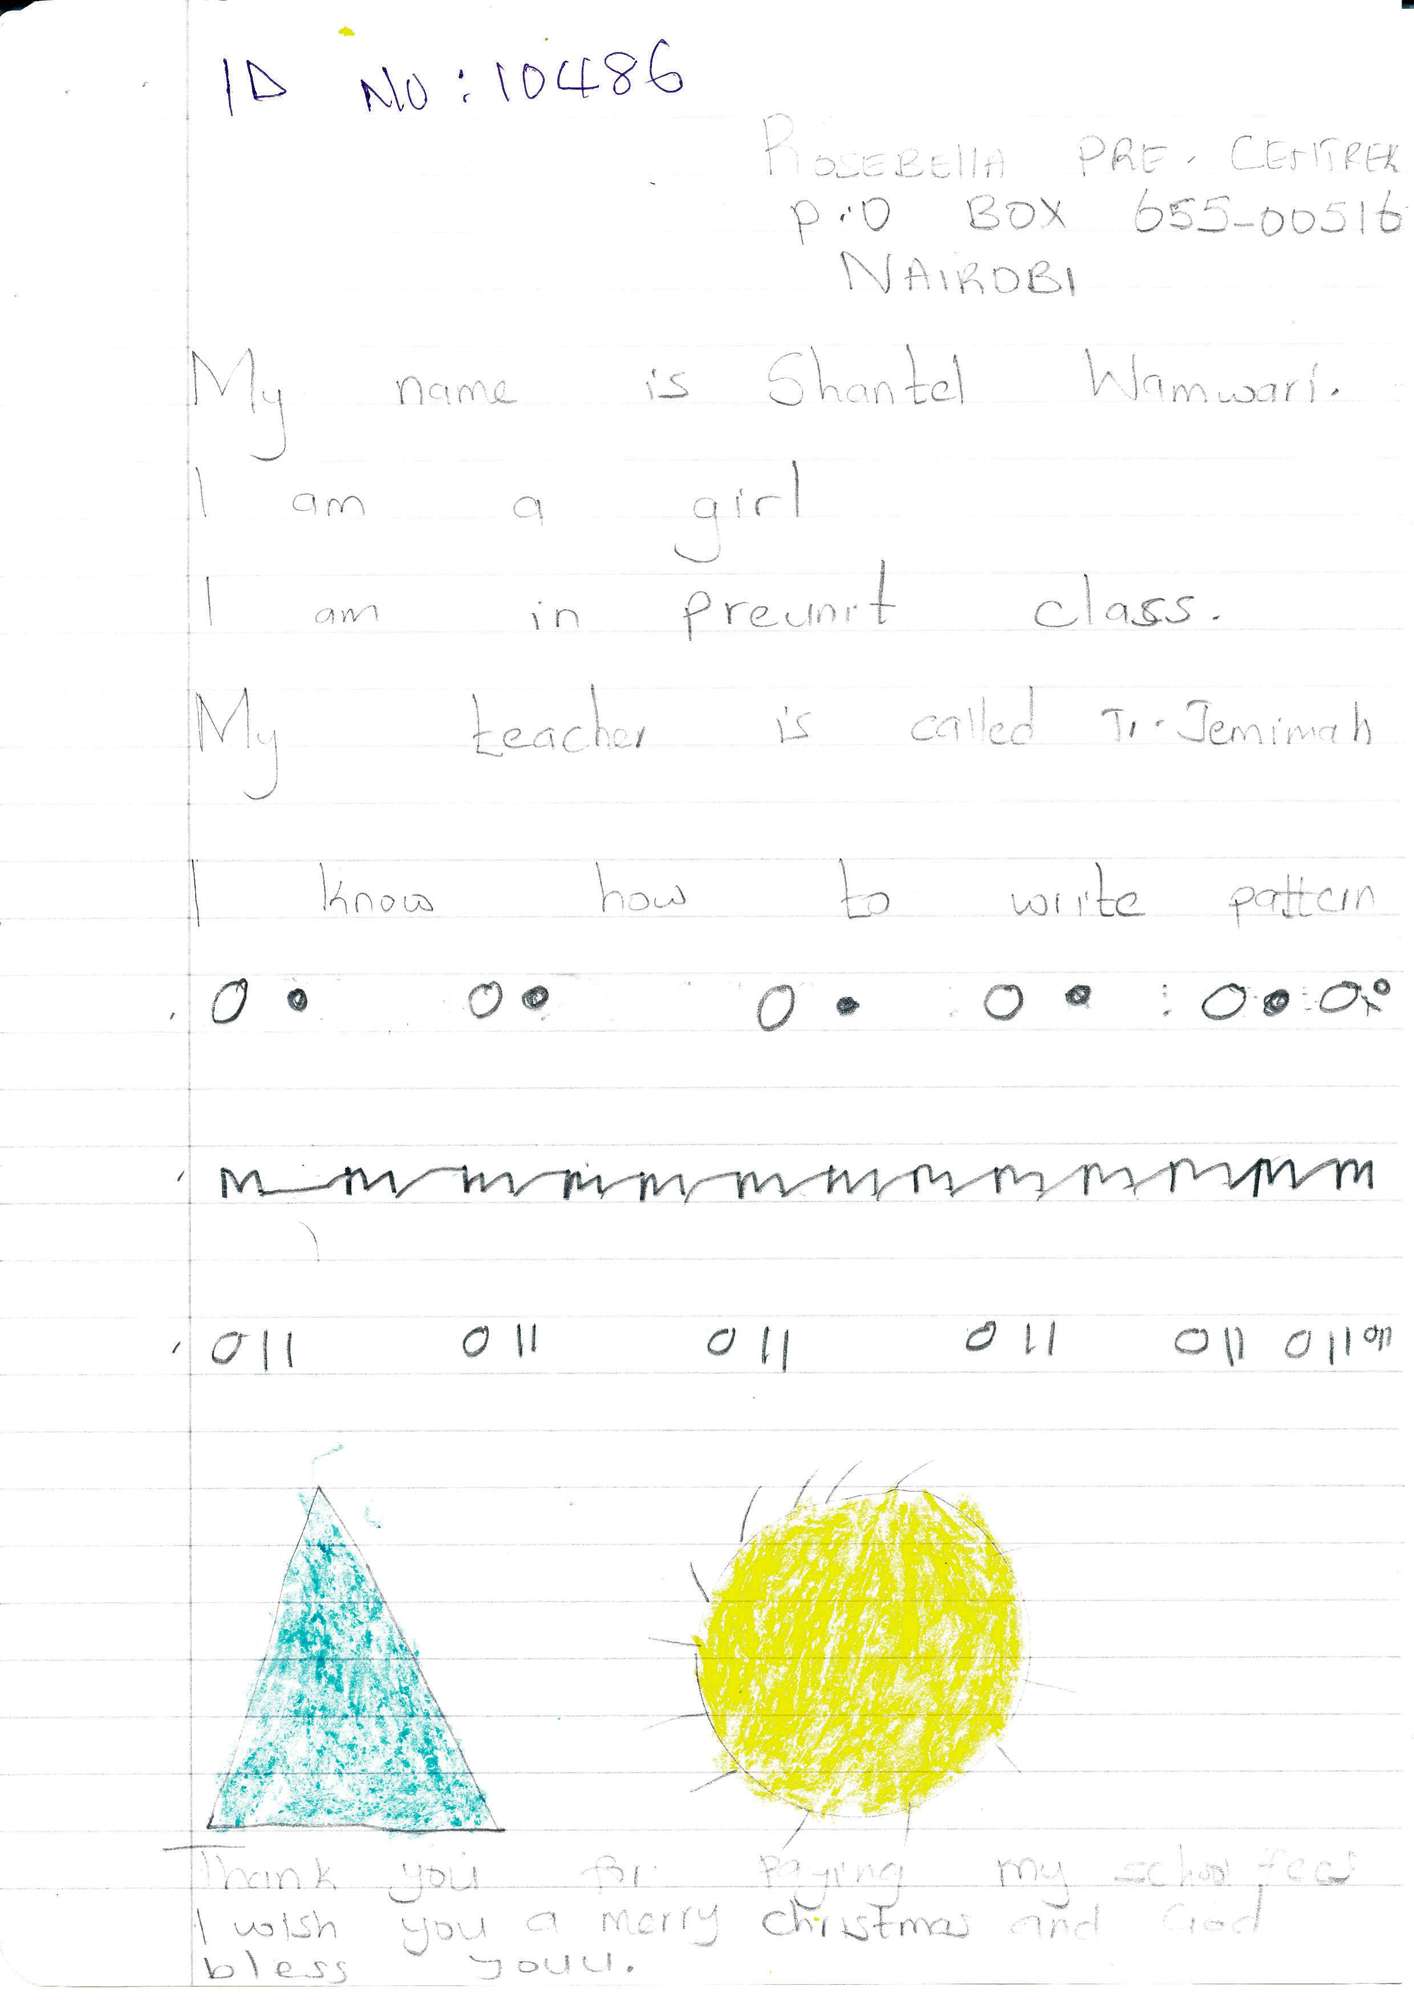 ID NO: 10486
ROSEBELLA PRE. CENTREK
P.O BOX 655-00516
NAIROBI
My name is Shantel Wamwari.
I am a girl
I am in preunit class.
My teacher is called Tr. Jemimah
I know how to write pattern
Thank you for paying my school fees
I wish you a merry christmas and God
bless youu.